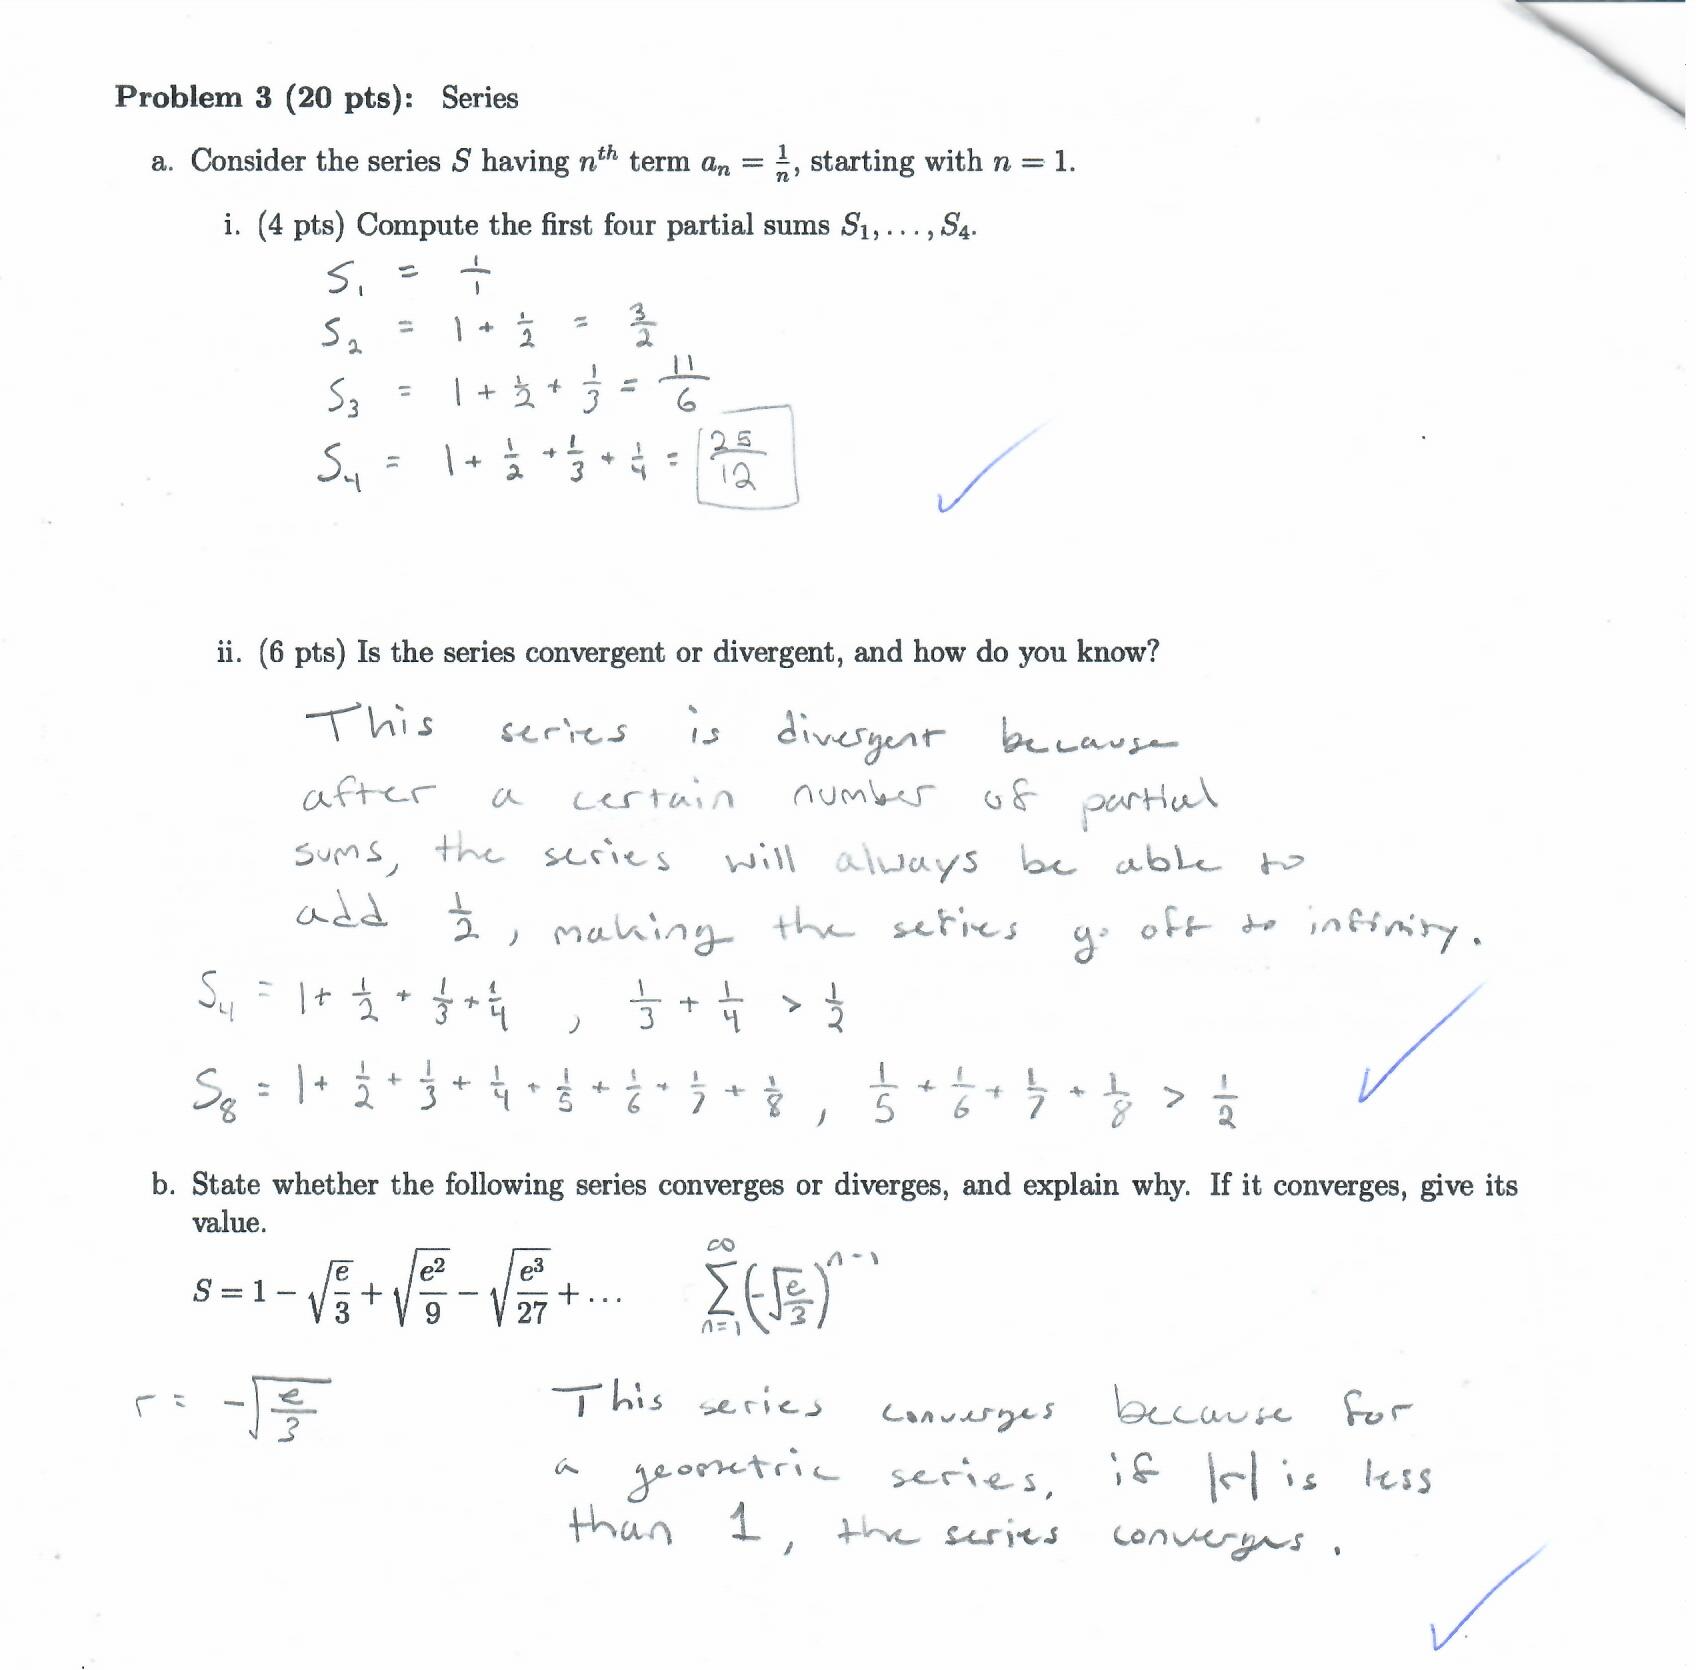 Problem 3 (20 pts): Series
a. Consider the series S having nth term a_n = 1/n, starting with n = 1.
i. (4 pts) Compute the first four partial sums S₁, . . . , S₄.
S₁ = 1/1
S₂ = 1 + 1/2 = 3/2
S₃ = 1 + 1/2 + 1/3 = 11/6
S₄ = 1 + 1/2 + 1/3 + 1/4 = 25/12
ii. (6 pts) Is the series convergent or divergent, and how do you know?
This series is divergent because
after a certain number of partial
sums, the series will always be able to
add 1/2, making the series go off to infinity.
S₄ = 1 + 1/2 + 1/3 + 1/4 , 1/3 + 1/4 > 1/2
S₈ = 1 + 1/2 + 1/3 + 1/4 + 1/5 + 1/6 + 1/7 + 1/8 , 1/5 + 1/6 + 1/7 + 1/8 > 1/2
b. State whether the following series converges or diverges, and explain why. If it converges, give its
value.
S = 1 − √(e/3) + √(e²/9) − √(e³/27) + . . . ∞ Σ n=1 (−√(e/3))^(n−1)
r = −√(e/3)
This series converges because for
a geometric series, if |r| is less
than 1, the series converges.